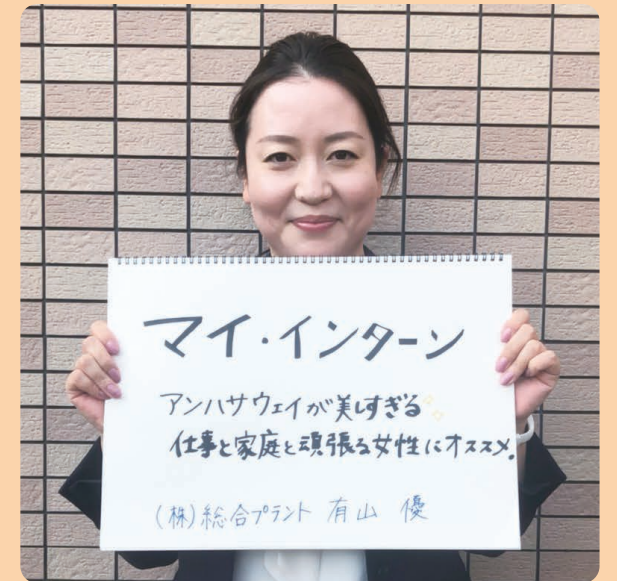 マイ・インターン
アンハサウェイが美しすぎる
仕事と家庭と頑張る女性にオススメ。
(株)総合プラント 有山 優